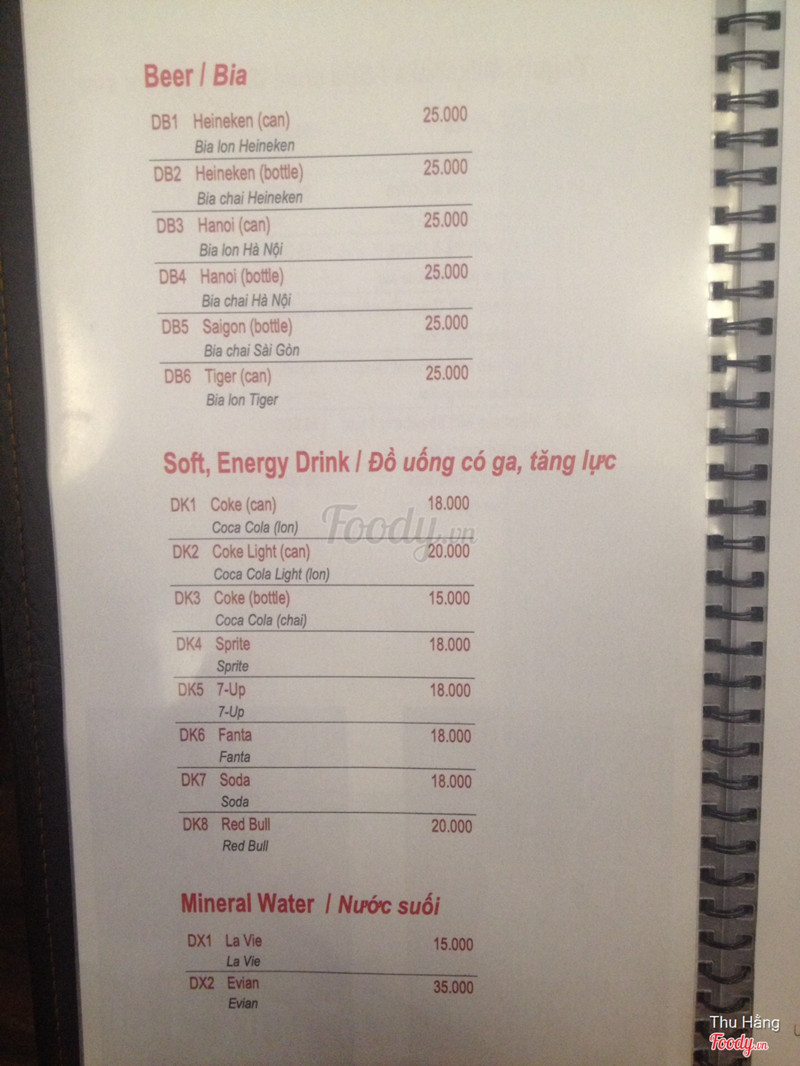 Beer / Bia
DB1 Heineken (can) 25.000
Bia lon Heineken
DB2 Heineken (bottle) 25.000
Bia chai Heineken
DB3 Hanoi (can) 25.000
Bia lon Hà Nội
DB4 Hanoi (bottle) 25.000
Bia chai Hà Nội
DB5 Saigon (bottle) 25.000
Bia chai Sài Gòn
DB6 Tiger (can) 25.000
Bia lon Tiger
Soft, Energy Drink / Đồ uống có ga, tăng lực
DK1 Coke (can) 18.000
Coca Cola (lon)
Foody.vn
DK2 Coke Light (can) 20.000
Coca Cola Light (lon)
DK3 Coke (bottle) 15.000
Coca Cola (chai)
DK4 Sprite 18.000
Sprite
DK5 7-Up 18.000
7-Up
DK6 Fanta 18.000
Fanta
DK7 Soda 18.000
Soda
DK8 Red Bull 20.000
Red Bull
Mineral Water / Nước suối
DX1 La Vie 15.000
La Vie
DX2 Evian 35.000
Evian
Thu Hằng
Foody.vn